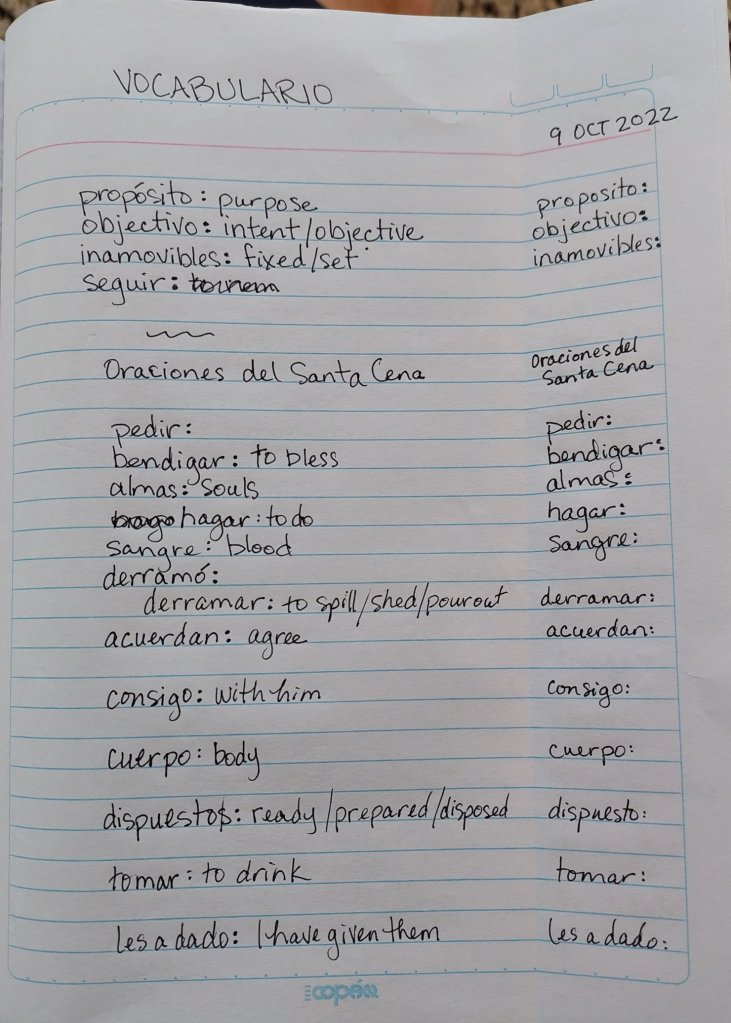 VOCABULARIO
9 OCT 2022
propósito: purpose
objectivo: intent/objective
inamovibles: fixed/set
seguir:
Oraciones del Santa Cena
pedir:
bendigar: to bless
almas: souls
hagar: to do
sangre: blood
derramó:
derramar: to spill/shed/pour out
acuerdan: agree
consigo: with him
cuerpo: body
dispuestos: ready/prepared/disposed
tomar: to drink
les a dado: I have given them
proposito:
objectivo:
inamovibles:
Oraciones del
Santa Cena
pedir:
bendigar:
almas:
hagar:
sangre:
derramar:
acuerdan:
consigo:
cuerpo:
dispuesto:
tomar:
les a dado:
copán